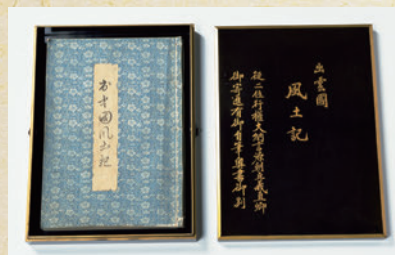 出雲國風土記
出雲國
風土記
從二位行權大納言源朝臣義直卿
御寄進有御自筆奥書御判